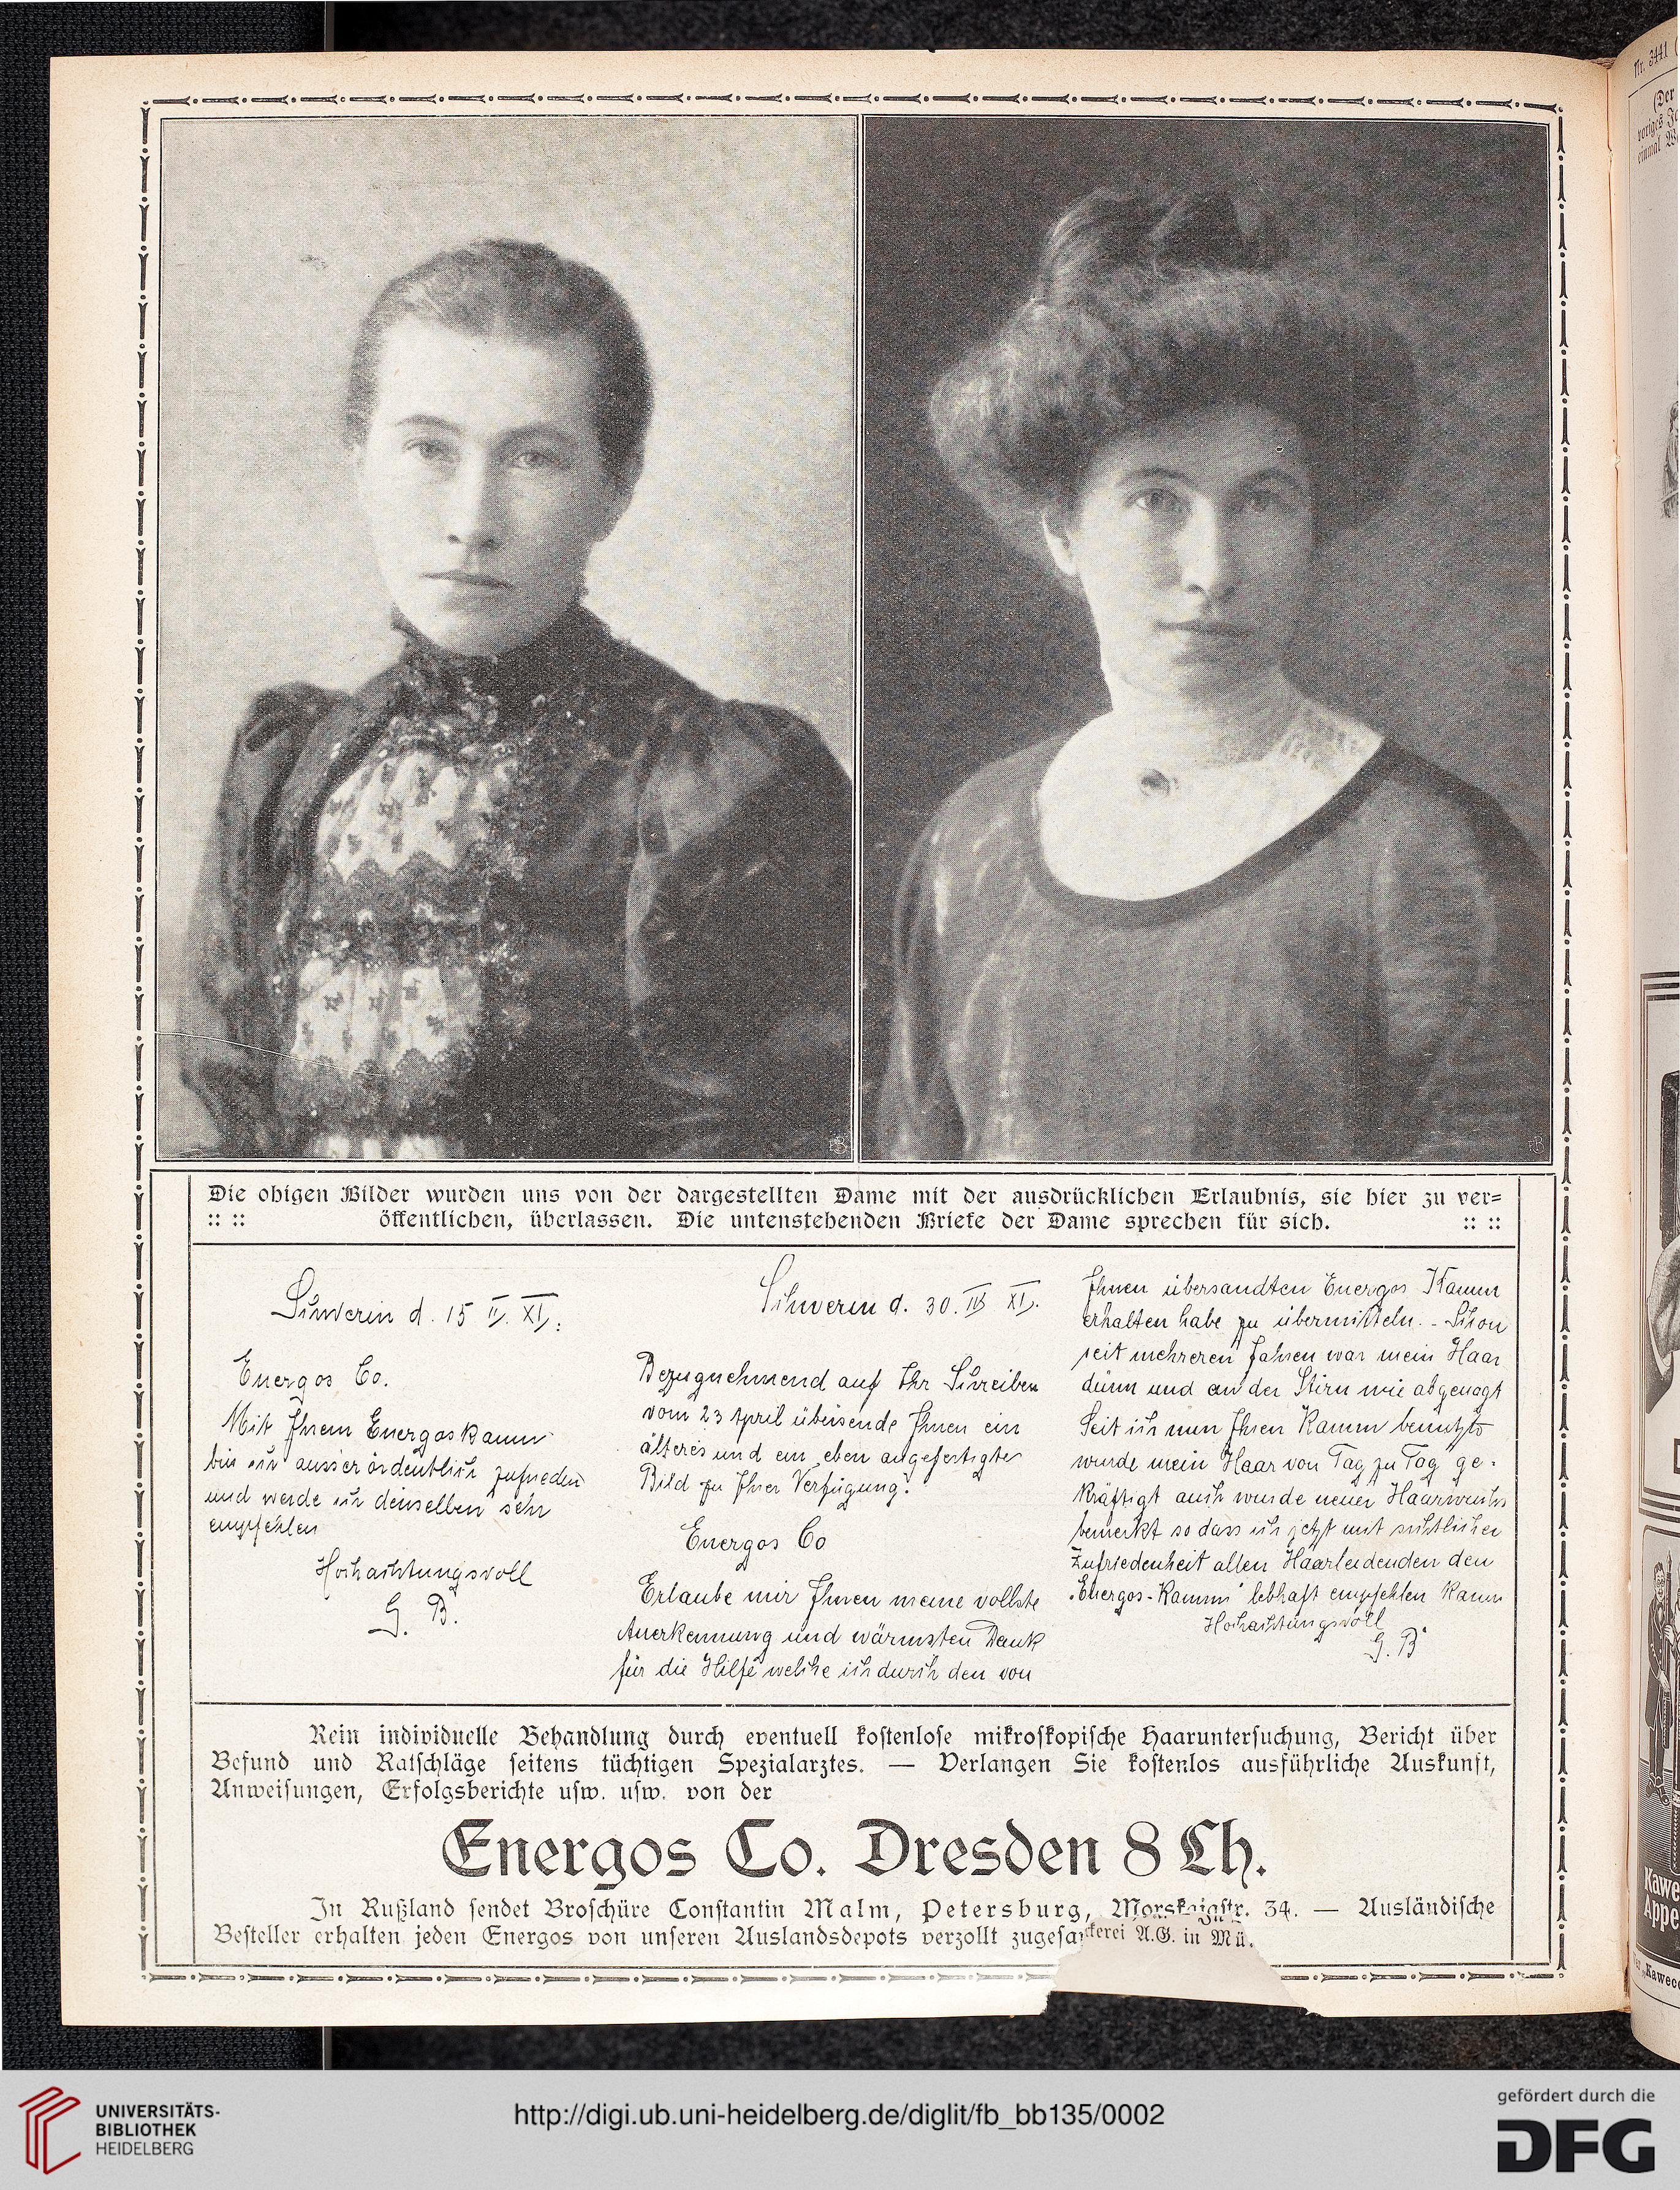 Die obigen Bilder wurden uns von der dargestellten Dame mit der ausdrücklichen Erlaubnis, sie hier zu ver=
:: :: öffentlichen, überlassen. Die untenstehenden Briefe der Dame sprechen für sich. :: ::
Schwerin d. 15 II. XI.
Energos Co.
Mit Ihrem Energoskamm
bin ich ausserordentlich zufrieden
und werde ich denselben sehr
empfehlen
Hochachtungsvoll
G. B.
Schwerin d. 30. XI.
Bezugnehmend auf Ihr Schreiben
vom 23 April übersende Ihnen ein
älteres und ein eben angefertigtes
Bild zu Ihrer Verfügung.
Energos Co
Erlaube mir Ihnen meine vollste
Anerkennung und wärmsten Dank
für die Hilfe welche ich durch den von
Ihnen übersandten Energos Kamm
erhalten habe zu übermitteln. - Schon
seit mehreren Jahren war mein Haar
dünn und an der Stirn wie abgenagt
Seit ich nun Ihren Kamm benutzte
wurde mein Haar von Tag zu Tag ge-
kräftigt auch wurde neuer Haarwuchs
bemerkt so dass ich jetzt mit sichtlicher
Zufriedenheit allen Haarleidenden den
„Energos-Kamm" lebhaft empfehlen kann
Hochachtungsvoll
G. B
Rein individuelle Behandlung durch eventuell kostenlose mikroskopische Haaruntersuchung, Bericht über
Befund und Ratschläge seitens tüchtigen Spezialarztes. — Verlangen Sie kostenlos ausführliche Auskunft,
Anweisungen, Erfolgsberichte usw. usw. von der
Energos Co. Dresden 8 Ch.
In Rußland sendet Broschüre Constantin Malm, Petersburg, Morskajastr. 34. — Ausländische
Besteller erhalten jeden Energos von unseren Auslandsdepots verzollt
A.G. in Mü.
Nr. 3441
(Der
voriges
einmal
Kawe
Appe
UNIVERSITÄTS-
BIBLIOTHEK
HEIDELBERG
http://digi.ub.uni-heidelberg.de/diglit/fb_bb135/0002
gefördert durch die
DFG